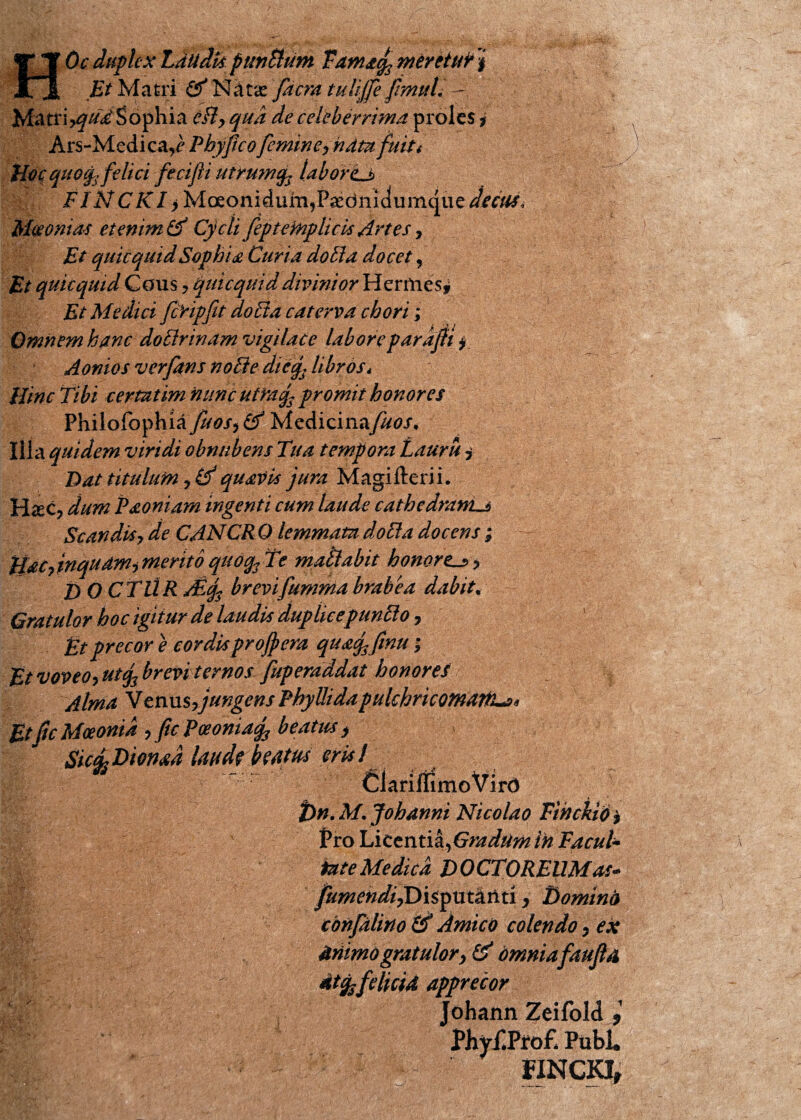 HOc duplex Laudis punctum Famæq; meretur;
Et Matri & Natæ sacra tulisse simul. -
Matri, quæ Sophia est, quâ de celeberrima proles;
Ars-Medica, è Physico semine, nata fuit.
Hoc quoq; felici fecisti utrumq; labore
FINCKI, Mœonidum, Pæonidumque decus.
Mæonias etenim & Cycli septemplicis Artes,
Et quicquid Sophiæ Curia docta docet,
Et quicquid Cous, quicquid divinior Hermes,
Et Medici scripsit docta caterva chori;
Omnem hanc doctrinam vigilace labore parâsti;
Aonios versans nocte dieq; libros.
Hinc Tibi certatim nunc utraq; promit honores
Philosophiâ suos, & Medicina suos.
Illa quidem viridi obnubens Tua tempora Laurû;
Dat titulum, & quævis jura Magisterii.
Hæc, dum Pæoniam ingenti cum laude cathedram
Scandis, de CANCRO lemmata docta docens;
Hæc, inquam, meritò quoq; Te mactabit honore,
DOCTUR Æq; brevi summa brabèa dabit.
Gratulor hoc igitur de laudis duplice puncto,
Et precor è cordis prospera quæq; sinu;
Et voveo, utq; brevi ternos superaddat honores
Alma Venus, jungens Phyllida pulchricomam.
Et sic Mœoniâ, sic Pœoniaq; beatus,
Sicq; Dionæâ laude beatus eris!
Clarissimo Viro
Dn. M. Johanni Nicolao Finckio;
Pro Licentiâ, Gradum in Facul-
tate Medicâ DOCTOREUM as-
sumendi, Disputanti, Domino
consalino & Amico colendo, ex
animo gratulor, & omnia fausta
atq; felicia apprecor
Johann Zeisold,
Phys. Prof. Publ.
FINCKI,